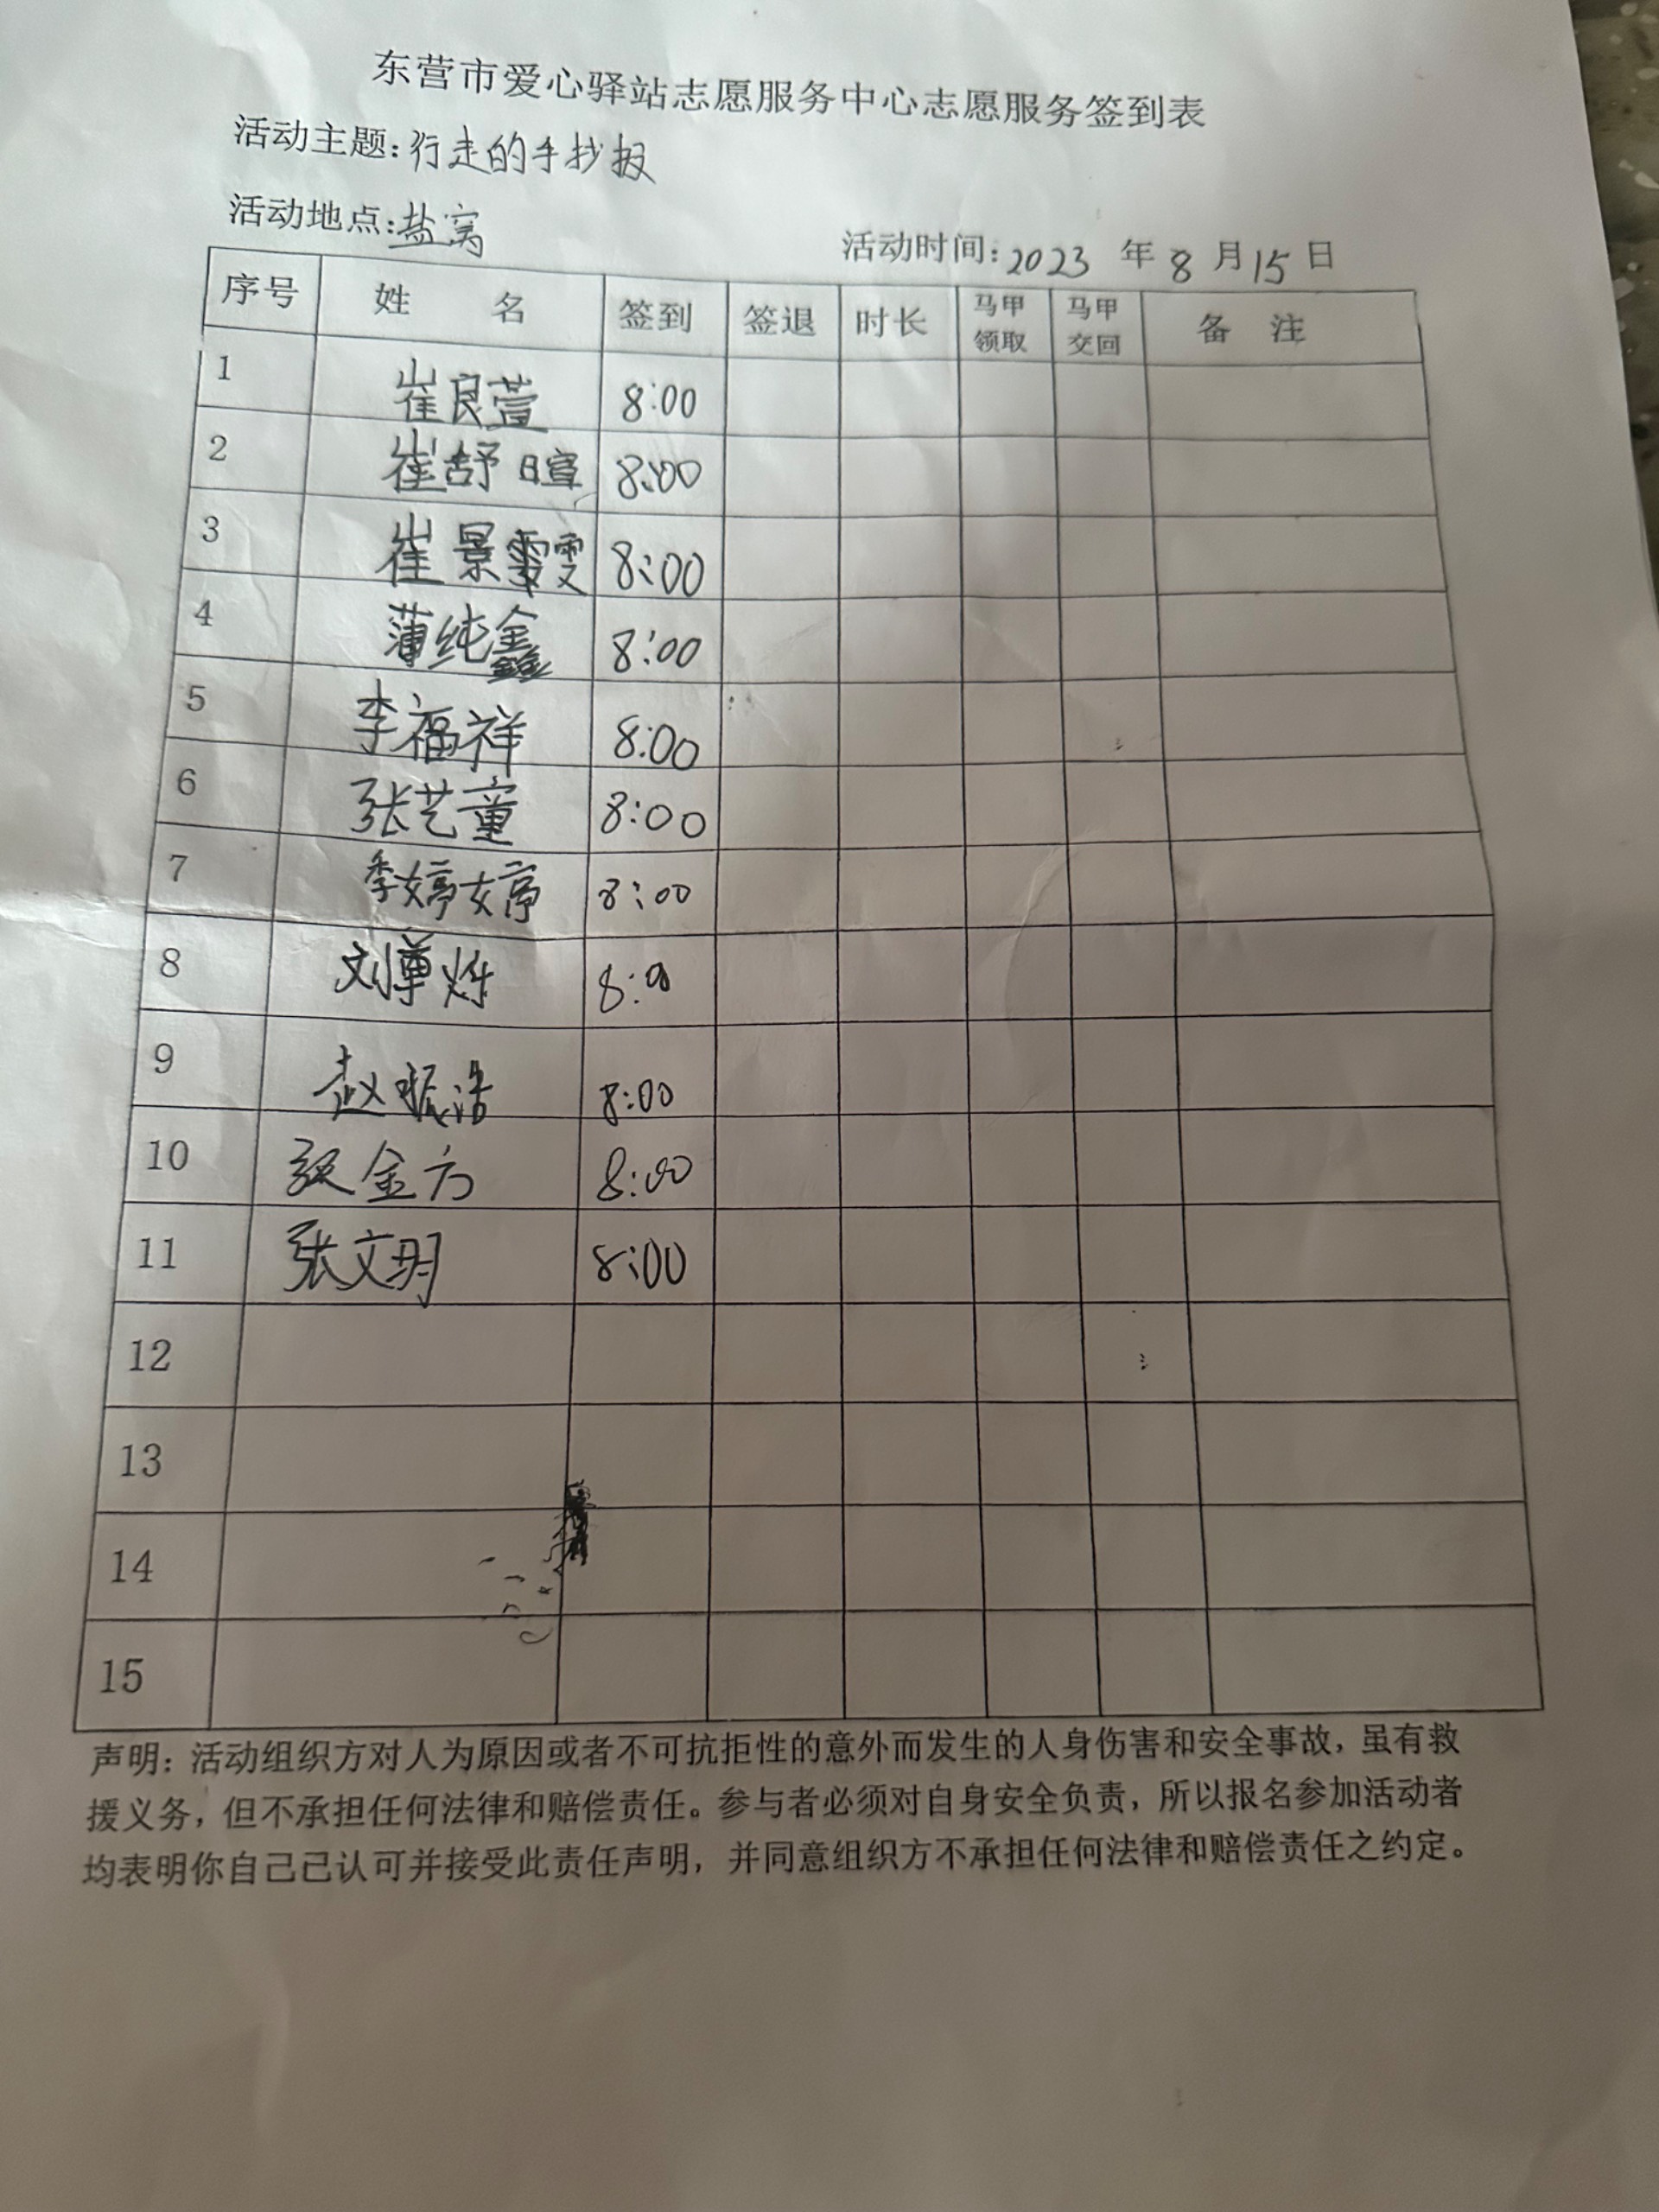 东营市爱心驿站志愿服务中心志愿服务签到表
活动主题:行走的手抄报
活动地点:盐窝
活动时间:2023 年 8 月 15 日
序号 姓 名 签到 签退 时长 马甲领取 马甲交回 备 注
1 崔良萱 8:00
2 崔舒暄 8:00
3 崔景雯 8:00
4 薄纯鑫 8:00
5 李福祥 8:00
6 张艺童 8:00
7 季婷婷 8:00
8 刘 8:
9 赵 浩 8:00
10 张金方 8:00
11 张文明 8:00
12
13
14
15
声明：活动组织方对人为原因或者不可抗拒性的意外而发生的人身伤害和安全事故，虽有救
援义务，但不承担任何法律和赔偿责任。参与者必须对自身安全负责，所以报名参加活动者
均表明你自己已认可并接受此责任声明，并同意组织方不承担任何法律和赔偿责任之约定。